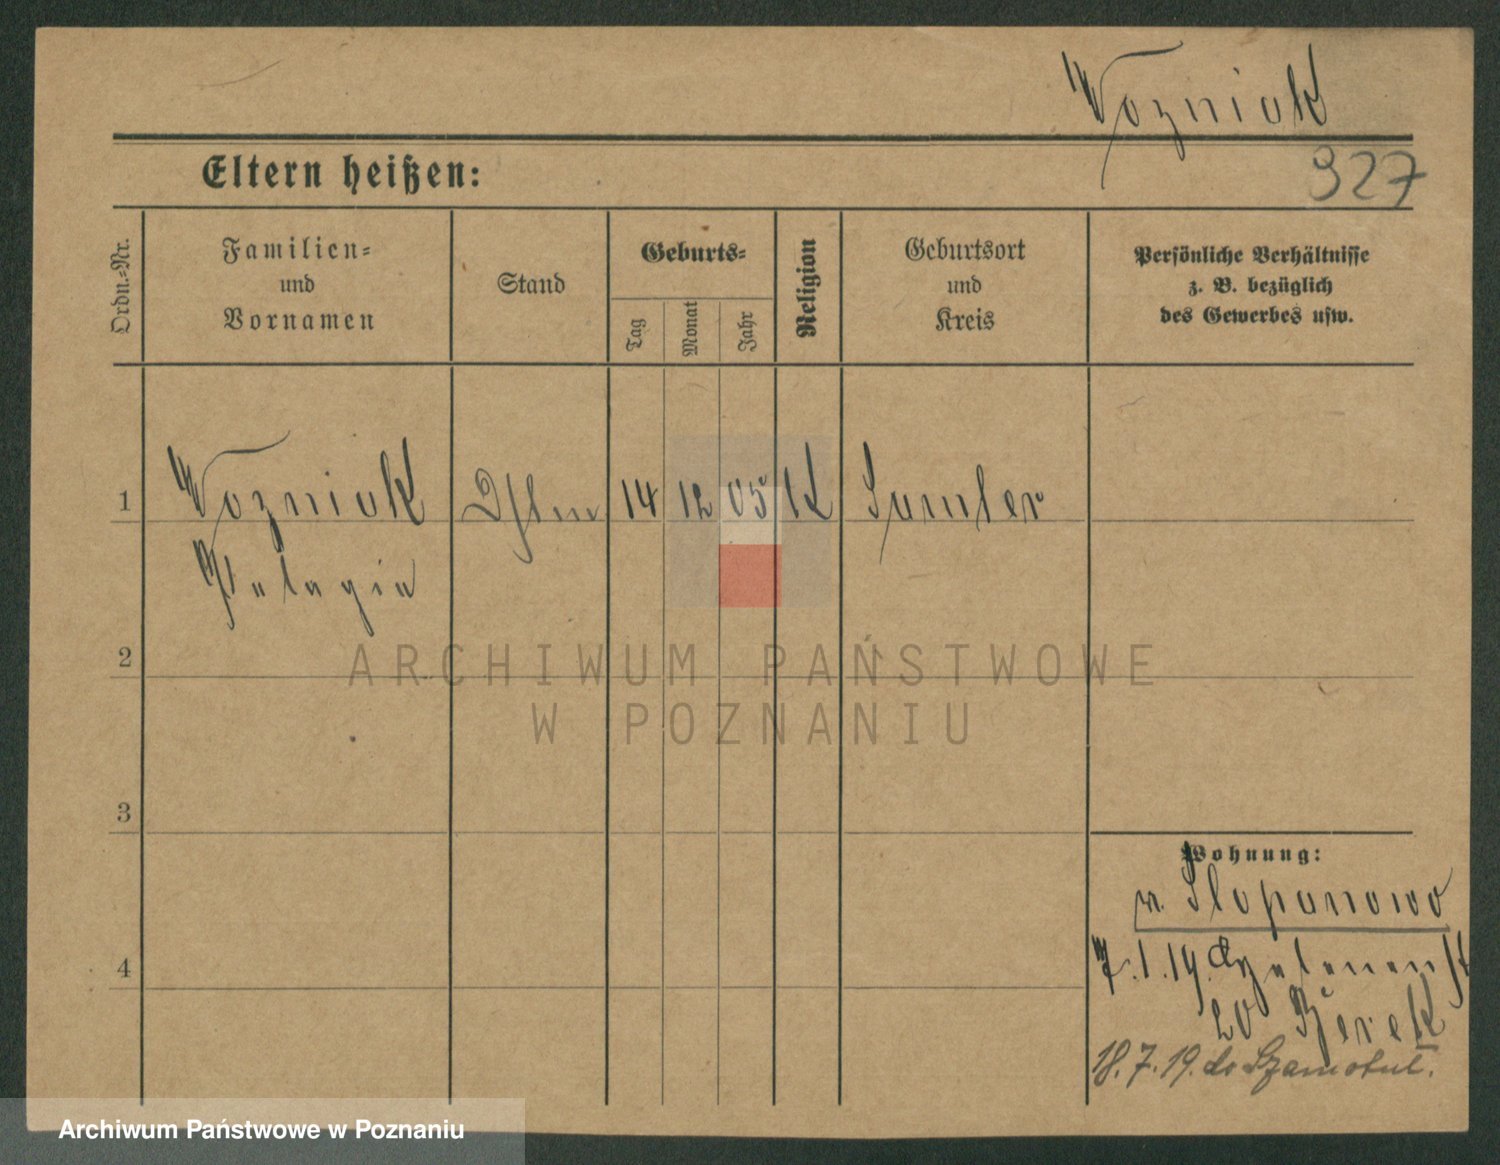 Wozniak
Eltern heißen:
927
Ordn.-Nr.
Familien-
und
Vornamen
Stand
Geburts-
Tag
Monat
Jahr
Religion
Geburtsort
und
Kreis
Persönliche Verhältnisse
z. B. bezüglich
des Gewerbes usw.
1 Wozniak 14 12 05 K Samter
Pelagia
2
ARCHIWUM PAŃSTWOWE
W POZNANIU
3
Wohnung:
v. Slopanowo
4
7.1.19.
20
18.7.19. do Szamotuł.
Archiwum Państwowe w Poznaniu